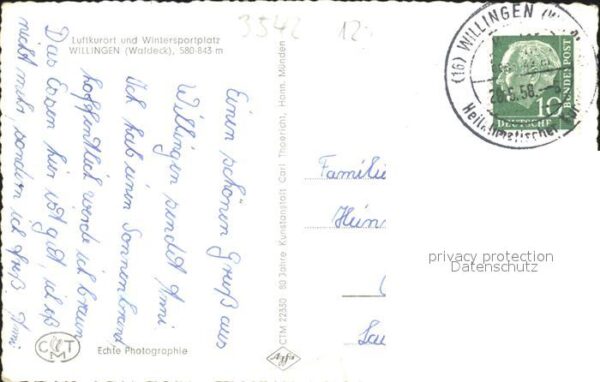 3542
12
Luftkurort und Wintersportplatz
WILLINGEN (Waldeck), 580-843 m
Einen schönen Gruß aus
Willingen sendet Ami.
Ich hab einen Sonnenbrand
hoffentlich werde ich braun
Das Essen hier ist gut, ich eß
nicht mehr, sondern ich freß. Ami
CTM
Echte Photographie
CTM 22350 80 Jahre Kunstanstalt Carl Thoericht, Hann. Münden
Agfa
(16) WILLINGEN
.5.58.
Heilklimatischer
10
DEUTSCHE
BUNDESPOST
Familie
Hein
privacy protection
Datenschutz